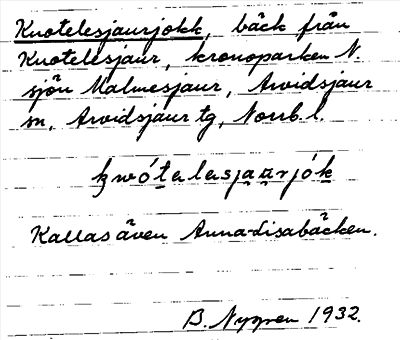 Kuotelesjaurjokk, bäck från
Kuotelesjaur, kronoparken N.
sjön Malmesjaur, Arvidsjaur
sn, Arvidsjaur tg, Norrb. l.
kwótalasjaurjók
Kallas även Anna-Lisabäcken.
B. Nygren 1932.